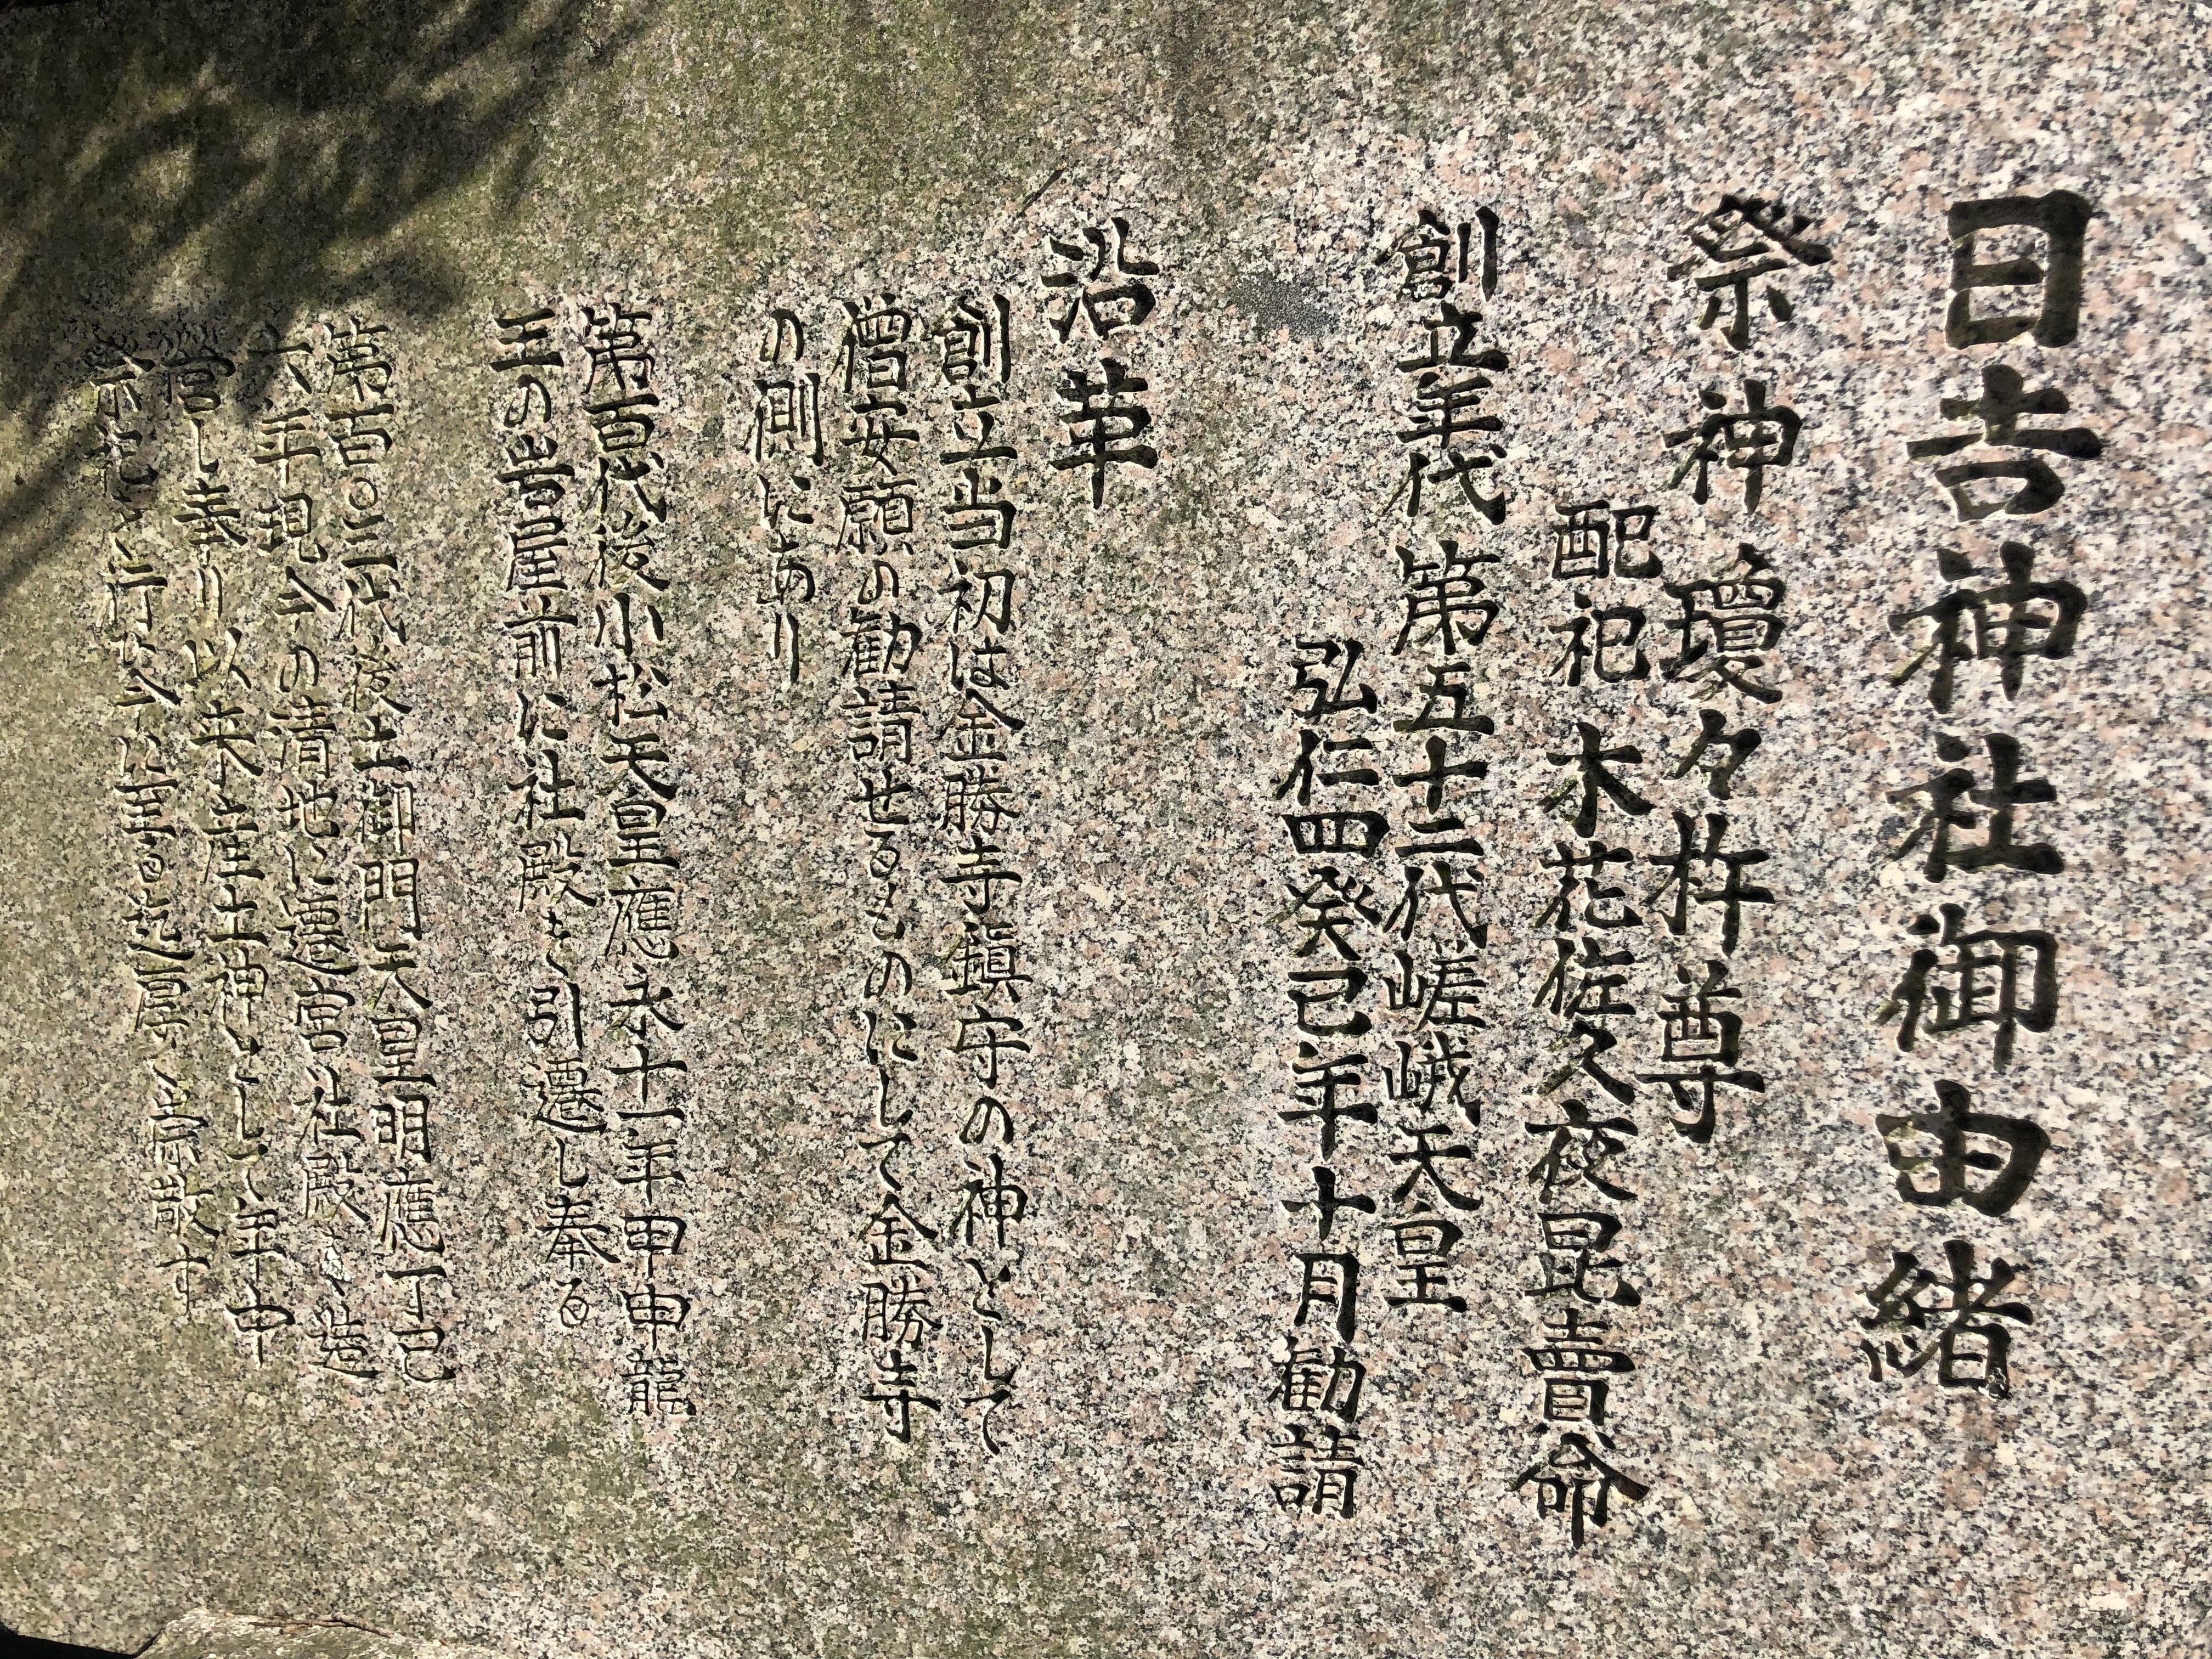 日吉神社御由緒
祭神 瓊々杵尊
配祀 木花佐久夜昆賣命
創立年代 第五十二代嵯峨天皇
弘仁四癸己年十月勧請
沿革
創立当初は金勝寺鎮守の神として
僧安願の勧請せるものにして金勝寺
の側にあり
第百代後小松天皇應永十一年甲申龍
王の岩屋前に社殿を引遷し奉る
第百〇三代後土御門天皇明應丁己
六年現今の清地に遷宮社殿を造
官し奉り以来産土神として年中
祭祀を行ひ今に至る迄厚く崇敬す